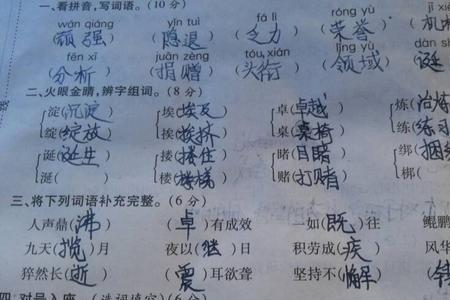 一、看拼音,写词语。(10 分)
wán qiáng yǐn tuì fá lì róng yù jī xiè
(顽强) (隐退) (乏力) (荣誉) (机
fēn xī juān zèng tóu xián lǐng yù dàn sh
(分析) (捐赠) (头衔) (领域) (诞
二、火眼金睛,辨字组词。(8 分)
淀(沉淀) 埃(埃及) 卓(卓越) 炼(冶炼
绽(绽放) 挨(挨挤) 桌(桌椅) 练(练习
诞(诞生) 搂(搂住) 睹(目睹) 绑(捆绑
诞( ) 楼(楼梯) 赌(打赌) 梆(
三、将下列词语补充完整。(6 分)
人声鼎(沸) (卓)有成效 一如(既)往 鲲鹏
九天(揽)月 夜以(继)日 积劳成(疾) 风华
猝然长(逝) (震)耳欲聋 坚持不(懈)
四、对号入座。(选词填空)(6 分)